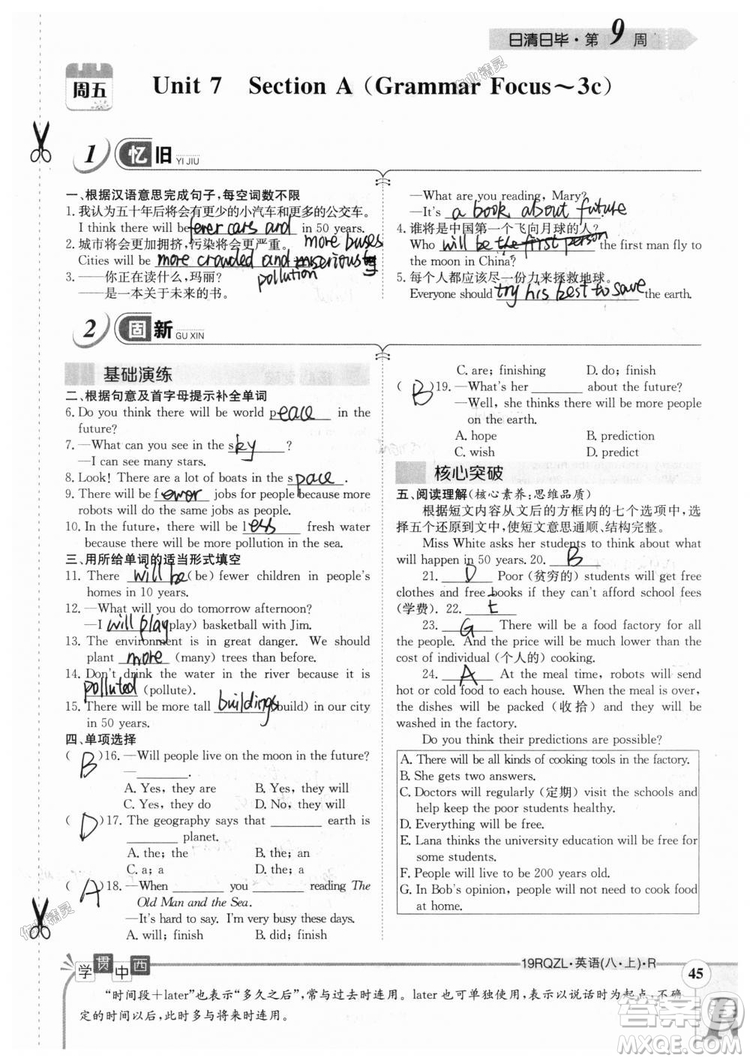 日清日毕·第9周
周五
Unit 7 Section A (Grammar Focus～3c)
1 忆旧 YI JIU
一、根据汉语意思完成句子，每空词数不限
1. 我认为五十年后将会有更少的小汽车和更多的公交车。
I think there will be fever cars and in 50 years.
more buses
2. 城市将会更加拥挤，污染将会更严重。
Cities will be more crowded and
pollution
3. ——你正在读什么，玛丽？
——是一本关于未来的书。
—What are you reading, Mary?
—It's a book about future
4. 谁将是中国第一个飞向月球的人？
Who will be the first person the first man fly to
the moon in China?
5. 每个人都应该尽一份力来拯救地球。
Everyone should try his best to save the earth.
2 固新 GU XIN
基础演练
二、根据句意及首字母提示补全单词
6. Do you think there will be world peace in the
future?
7. —What can you see in the sky?
—I can see many stars.
8. Look! There are a lot of boats in the space.
9. There will be fewer jobs for people because more
robots will do the same jobs as people.
10. In the future, there will be less fresh water
because there will be more pollution in the sea.
三、用所给单词的适当形式填空
11. There will be (be) fewer children in people's
homes in 10 years.
12. —What will you do tomorrow afternoon?
—I will play(play) basketball with Jim.
13. The environment is in great danger. We should
plant more (many) trees.
14. Don't drink the water in the river because it is
polluted (pollute).
15. There will be more tall buildings(build) in our city
in 50 years.
四、单项选择
( B )16. —Will people live on the moon in the future?
—________.
A. Yes, they are B. Yes, they will
C. Yes, they do D. No, they will
( D )17. The geography says that ________ earth is
________ planet.
A. the; the B. a; the
C. a; a D. the; a
( A )18. —When ________ you ________ reading The
Old Man and the Sea.
—It's hard to say. I'm very busy these days.
A. will; finish B. did; finish
C. are; finishing D. do; finish
( B )19. —What's her ________ about the future?
—Well, she thinks there will be more people
on the earth.
A. hope B. prediction
C. wish D. predict
核心突破
五、阅读理解(核心素养：思维品质)
根据短文内容从文后的方框内的七个选项中，选
择五个还原到文中，使短文意思通顺、结构完整。
Miss White asks her students to think about what
will happen in 50 years. 20. B
21. D Poor (贫穷的) students will get free
clothes and free books if they can't afford school fees
(学费). 22. E
23. G There will be a food factory for all
the people. And the price will be much lower than the
cost of individual (个人的) cooking.
24. A At the meal time, robots will send
hot or cold food to each house. When the meal is over,
the dishes will be packed (收拾) and will be
washed in the factory.
Do you think their predictions are possible?
A. There will be all kinds of cooking tools in the factory.
B. She gets two answers.
C. Doctors will regularly (定期) visit schools and
help keep the students healthy.
D. Simon thinks there will be no poor students.
E. Lana thinks the university education will be free
for everyone.
F. People will be 200 years old.
G. In Bob's opinion, people will not need to cook food
at home.
学贯中西
19RQZL·英语(八·上)·R
45
“时间段＋later”也表示“多久之后”，常与过去时连用。later也可单独使用，表示以说话时为起点，不确
定的时间以后，此时多与将来时连用。
MXQE.COM